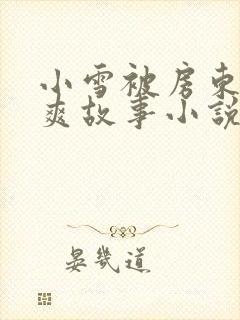 小雪被房东
爽故事小說
晏幾道